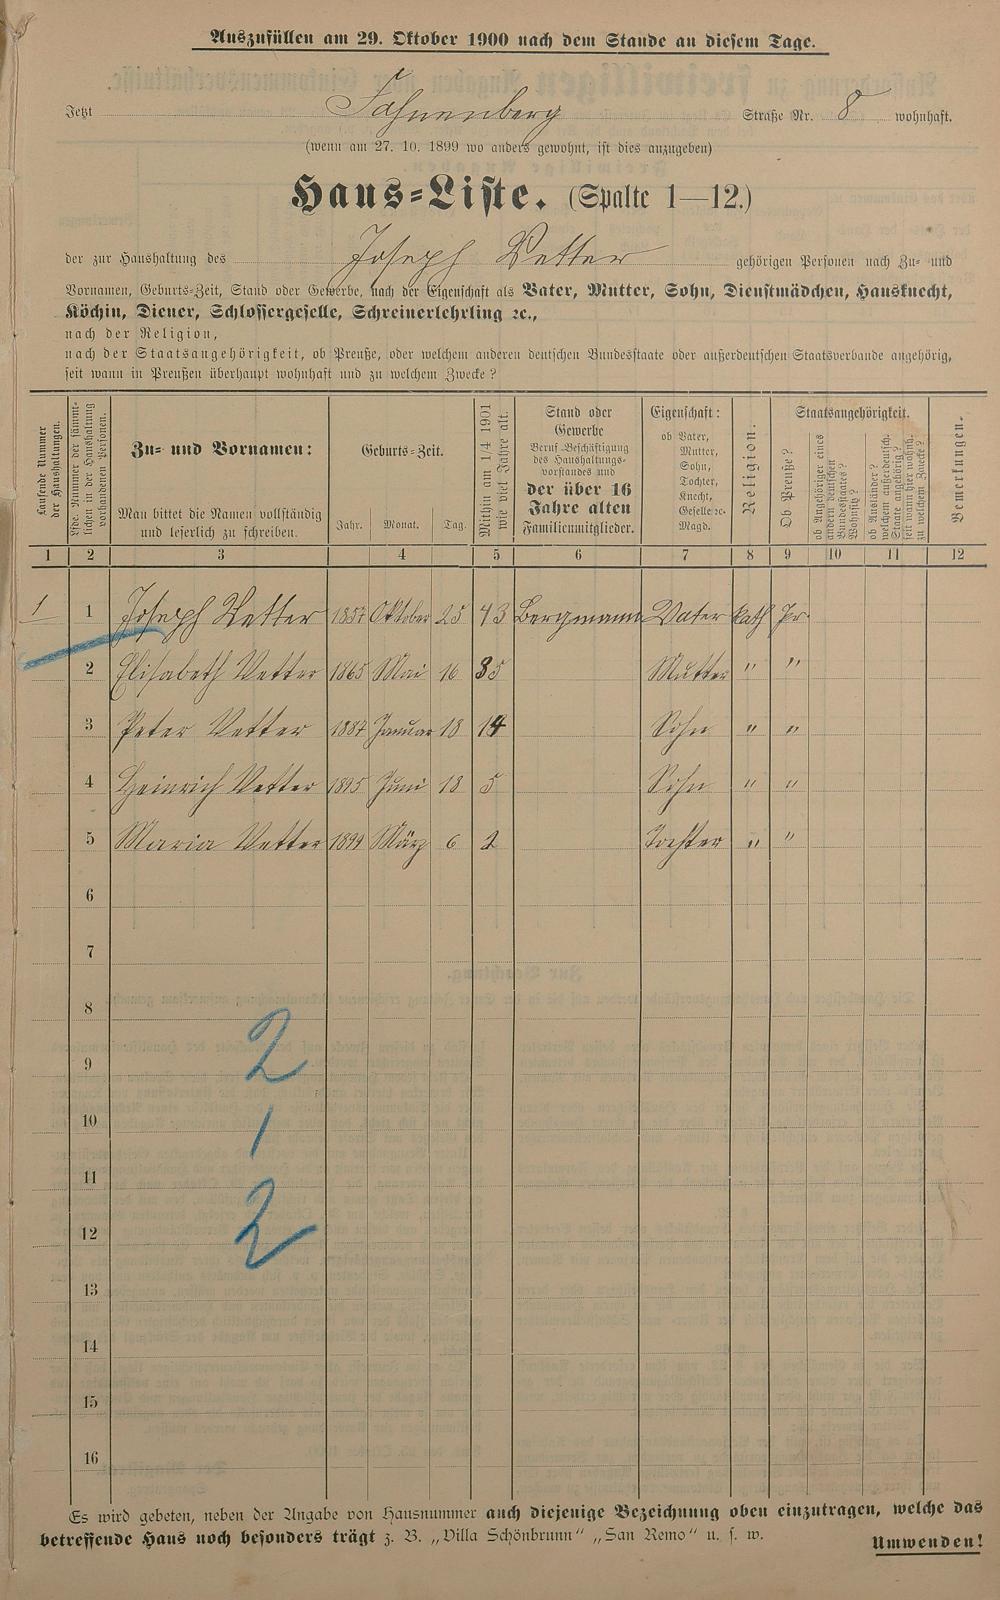 Auszufüllen am 29. Oktober 1900 nach dem Stande an diesem Tage.
Jetzt Fahnenberg Straße Nr. 8 wohnhaft.
(wenn am 27. 10. 1899 wo anders gewohnt, ist dies anzugeben)
Haus-Liste. (Spalte 1—12.)
der zur Haushaltung des Joseph Vetter gehörigen Personen nach Zu- und
Vornamen, Geburts-Zeit, Stand oder Gewerbe, nach der Eigenschaft als Vater, Mutter, Sohn, Dienstmädchen, Hausknecht,
Köchin, Diener, Schlossergeselle, Schreinerlehrling ꝛc.,
nach der Religion,
nach der Staatsangehörigkeit, ob Preuße, oder welchem anderen deutschen Bundesstaate oder außerdeutschen Staatsverbande angehörig,
seit wann in Preußen überhaupt wohnhaft und zu welchem Zwecke?
Laufende Nummer
der Haushaltungen.
Lfde. Nummer der sämmt-
lichen in der Haushaltung
vorhandenen Personen.
Zu- und Vornamen:
Man bittet die Namen vollständig
und leserlich zu schreiben.
Geburts-Zeit.
Jahr. Monat. Tag.
Mithin am 1/4 1901
wie viel Jahre alt.
Stand oder
Gewerbe
Beruf-Beschäftigung
des Haushaltungs-
vorstandes und
der über 16
Jahre alten
Familienmitglieder.
Eigenschaft:
ob Vater,
Mutter,
Sohn,
Tochter,
Knecht,
Geselle ꝛc.
Magd.
Religion.
Staatsangehörigkeit.
Ob Preuße?
ob Angehöriger eines
andern deutschen
Bundesstaates?
Wohnsitz?
ob Ausländer?
welchem außerdeutsch.
Staate angehörig?
seit wann hier wohnh.
zu welchem Zwecke?
Bemerkungen.
1 2 3 4 5 6 7 8 9 10 11 12
1 1 Joseph Vetter 1857 Oktober 25 43 Bergmann Vater kath Pr.
2 Elisabeth Vetter 1865 Mai 16 35 Mutter " "
3 Peter Vetter 1887 Januar 18 14 Sohn " "
4 Heinrich Vetter 1895 Juni 18 5 Sohn " "
5 Maria Vetter 1899 März 6 2 Tochter " "
6
7
8
2
9
10
1
11
2
12
13
14
15
16
Es wird gebeten, neben der Angabe von Hausnummer auch diejenige Bezeichnung oben einzutragen, welche das
betreffende Haus noch besonders trägt z. B. „Villa Schönbrunn“ „San Remo“ u. s. w.
Umwenden!